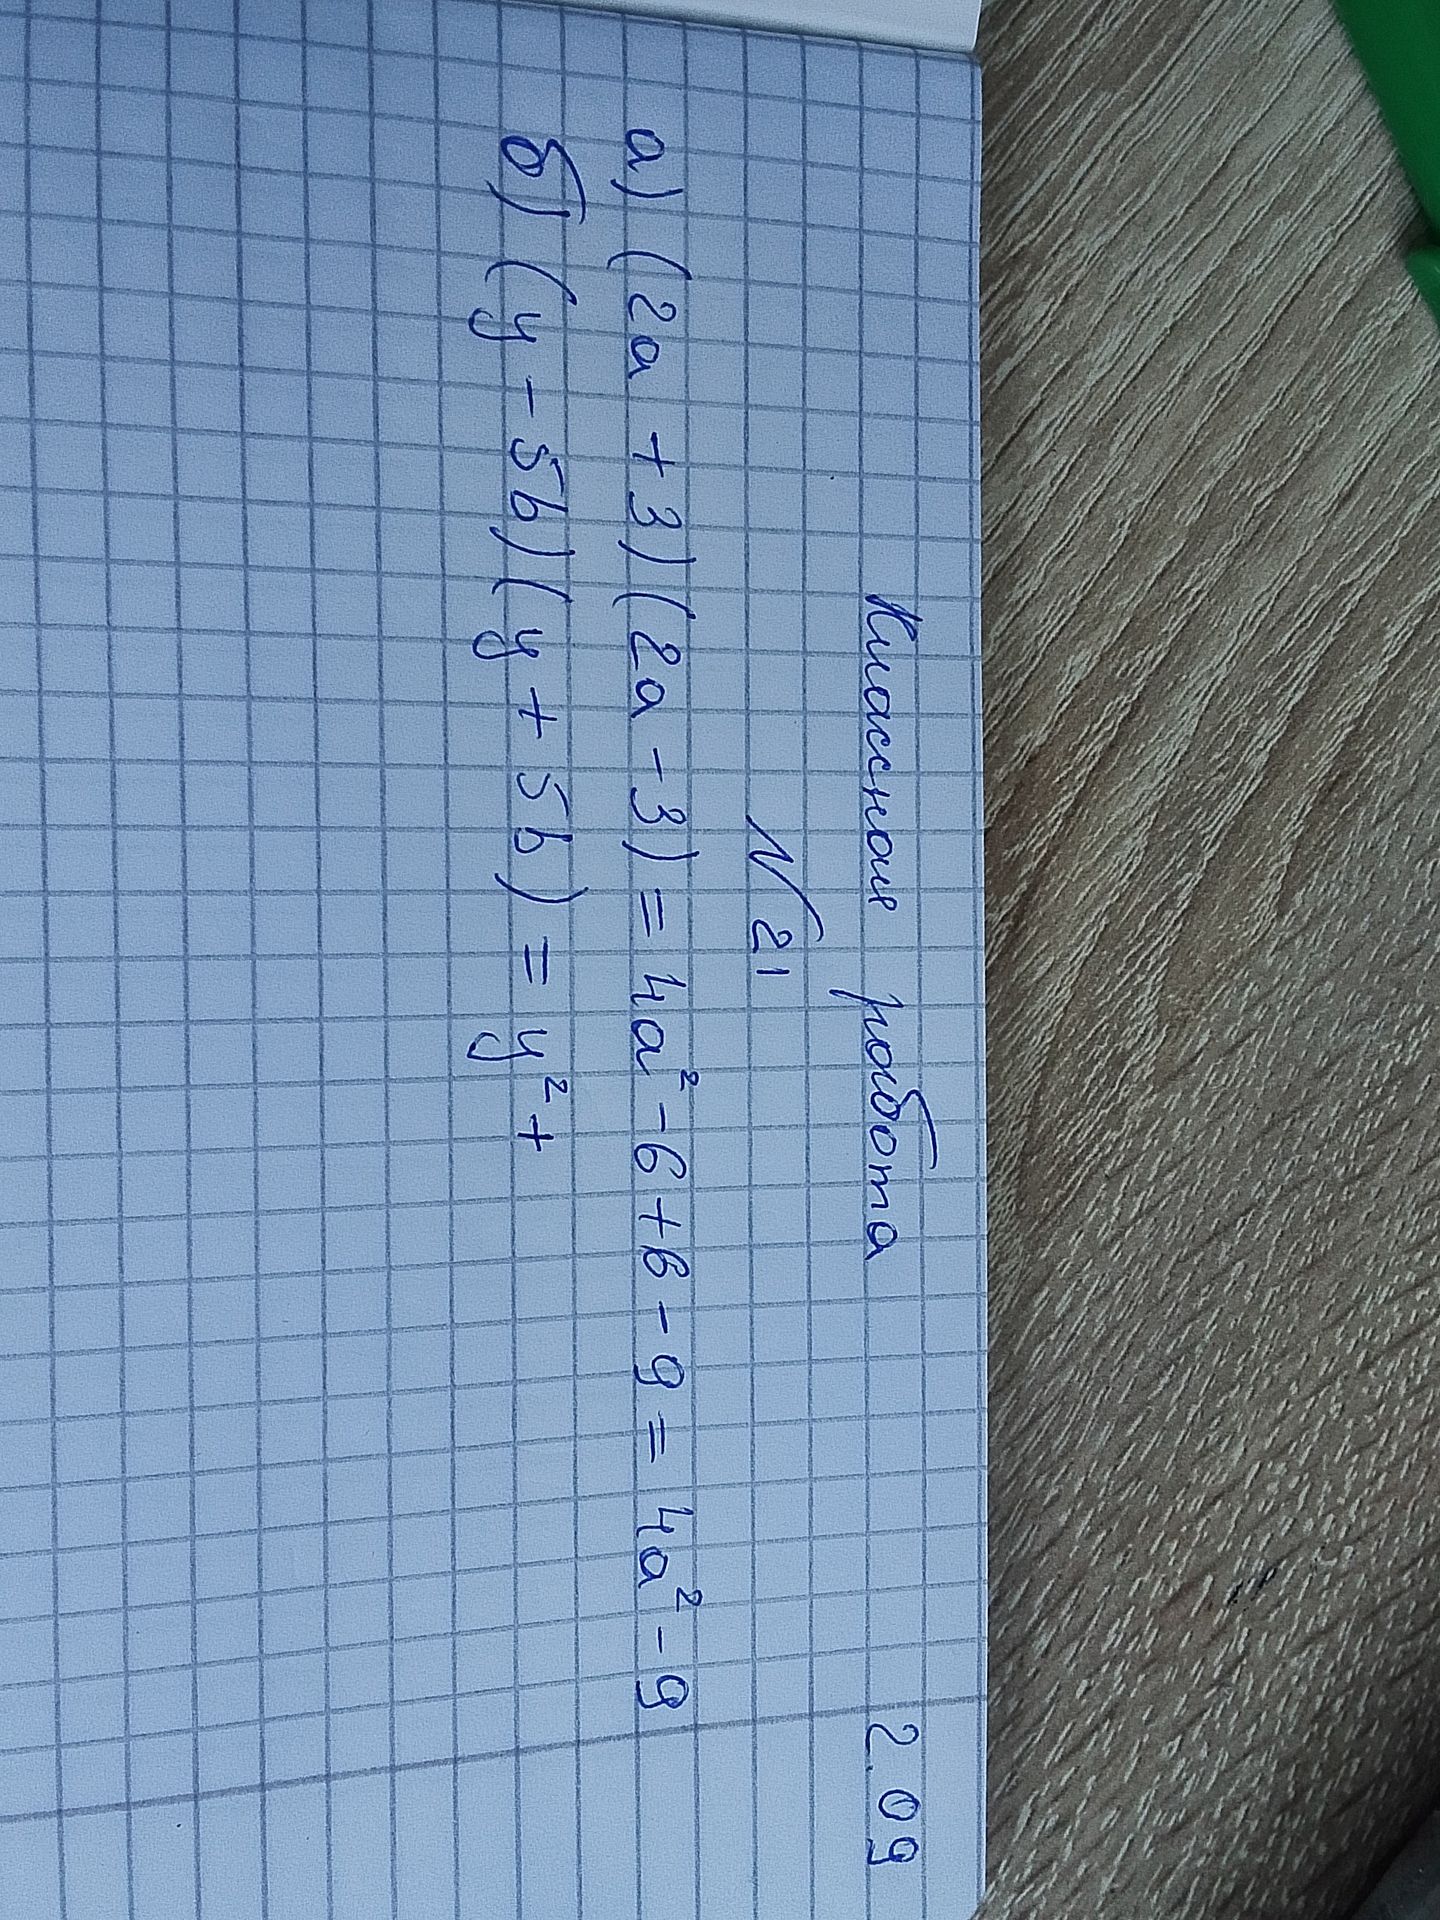 2.09
Классная работа
N21
а) (2a + 3)(2a - 3) = 4a² - 6 + 6 - 9 = 4a² - 9
б) (y - 5b)(y + 5b) = y² +